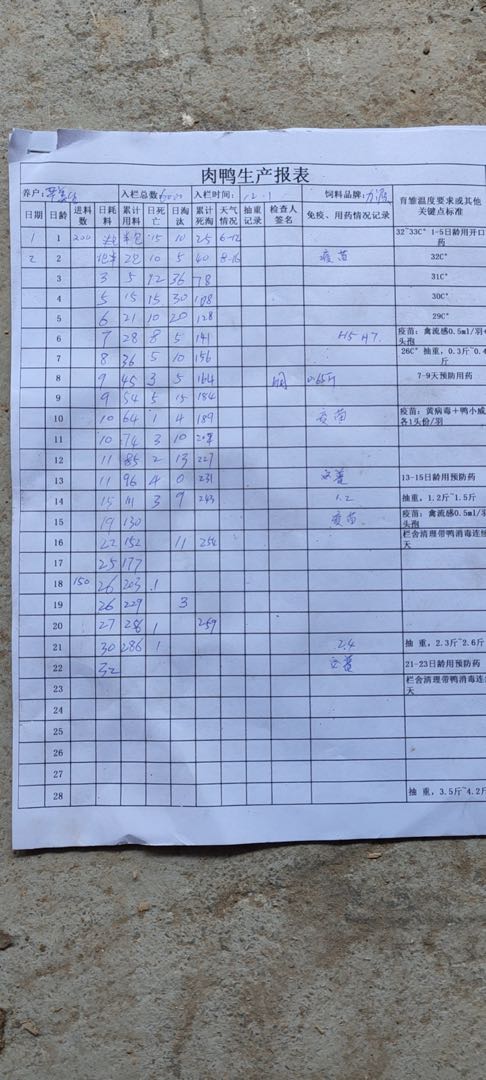 肉鸭生产报表
养户: 入栏总数: 入栏时间: 12.1 饲料品牌: 育雏温度要求或其他关键点标准
日期 日龄 进料数 日耗料 累计用料 日死亡 日淘汰 累计死淘 天气情况 抽重记录 检查人签名 免疫、用药情况记录
1 1 200 半包 15 10 25 6-12 32~33C° 1-5日龄用开口药
2 2 2包 10 5 40 8-16 疫苗 32C°
3 3 5 12 36 78 31C°
4 5 15 15 30 108 30C°
5 6 21 10 20 128 29C°
6 7 28 8 5 141 H5 H7 疫苗: 禽流感0.5ml/羽+ 头孢
7 8 36 5 10 156 26C° 抽重, 0.3斤~0.4斤
8 9 45 3 5 164 0.65斤 7-9天预防用药
9 9 54 5 15 184
10 10 64 1 4 189 疫苗 疫苗: 黄病毒+鸭小威 各1头份/羽
11 10 74 3 10
12 11 85 2 13 227
13 11 96 4 0 231 13-15日龄用预防药
14 15 111 3 9 243 1.2 抽重, 1.2斤~1.5斤
15 19 130 疫苗 疫苗: 禽流感0.5ml/羽 头孢
16 22 152 11 254 栏舍清理带鸭消毒连续 天
17 25 177
18 150 26 203 1
19 26 229 3
20 27 286 1 259
21 30 286 1 2.4 抽 重, 2.3斤~2.6斤
22 32 21-23日龄用预防药
23 栏舍清理带鸭消毒连 天
24
25
26
27
28 抽 重, 3.5斤~4.2斤